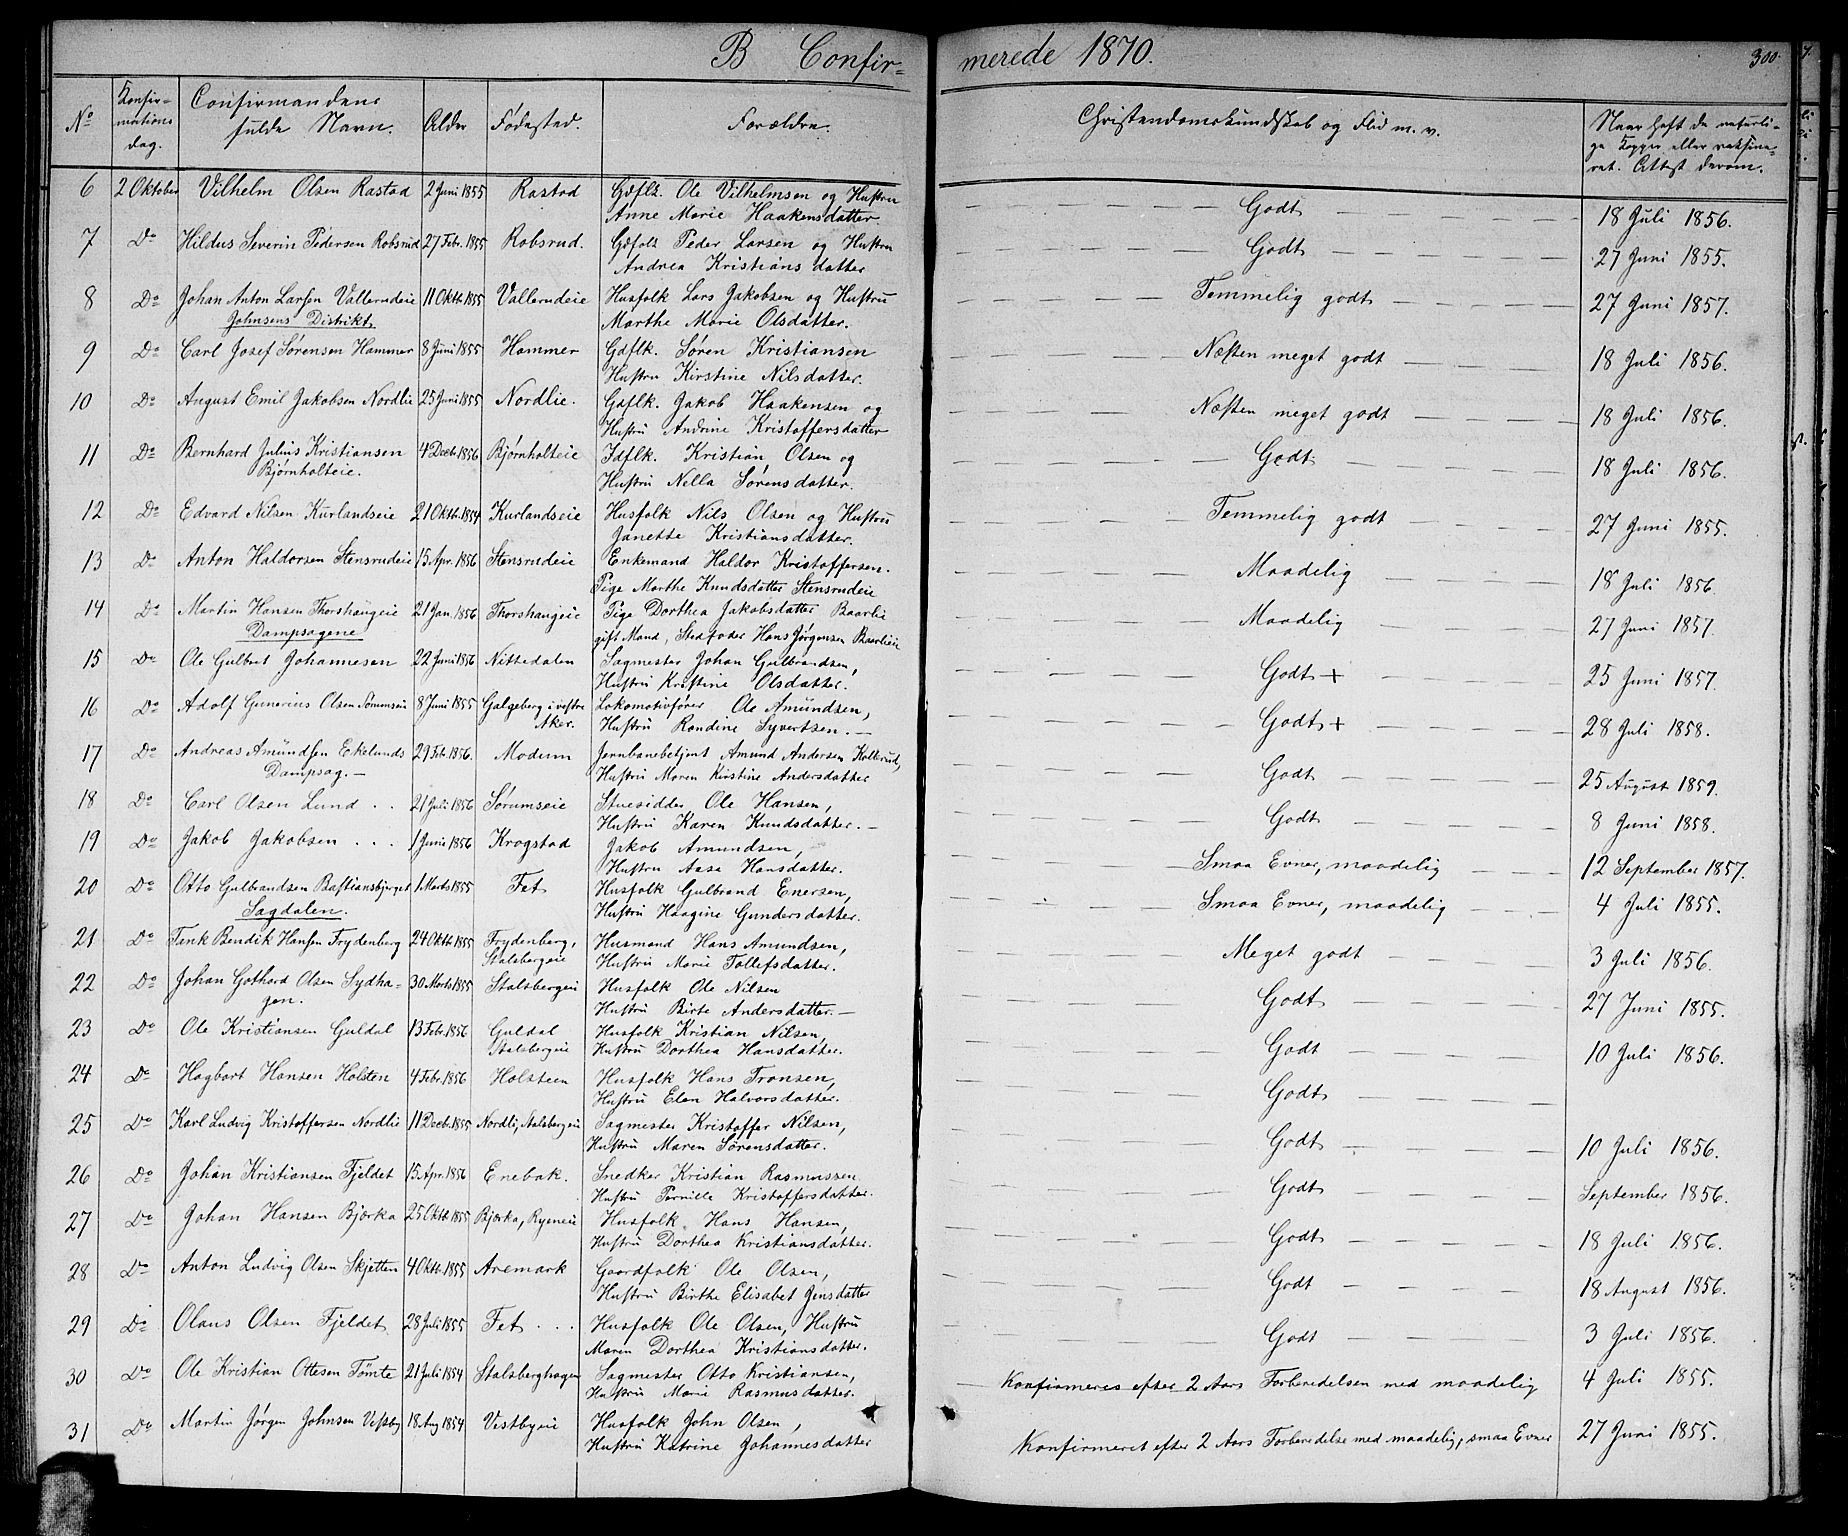 B Confirmerede 1870.
300.
No
Konfirmations dag.
Confirmandens fulde Navn.
Alder
Fødested.
Forældre.
Christendomskundskab og Flid m. v.
Naar haft de naturlige Kopper eller vaksineret. Attest derom.
6 2 Oktober Vilhelm Olsen Rastad 2 Juni 1855 Rastad Gdflk. Ole Vilhelmsen og Hustru
Anne Marie Haakensdatter Godt 18 Juli 1856.
7 Do Hildus Severin Pedersen Robsrud 27 Febr. 1855 Robsrud. Gdfolk Peder Larsen og Hustru
Andrea Kristians datter Godt 27 Juni 1855.
8 Do Johan Anton Larsen Vallerudeie 11 Oktb 1855 Vallerudeie Husfolk Lars Jakobsen og Hustru
Johnsens Distrikt Marthe Marie Olsdatter. Temmelig godt 27 Juni 1857.
9 Do Carl Josef Sørensen Hammer 8 Juni 1855 Hammer Gdflk. Søren Kristiansen
Hustru Kirstine Nilsdatter. Næsten meget godt 18 Juli 1856.
10 Do August Emil Jakobsen Nordlie 25 Juni 1855 Nordlie. Gdflk. Jakob Haakensen og
Hustru Andrine Kristoffersdatter Næsten meget godt 18 Juli 1856.
11 Do Bernhard Julius Kristiansen 4 Decb. 1856 Bjørnholteie Idflk. Kristian Olsen og
Bjørnholteie. Hustru Nella Sørensdatter. Godt 18 Juli 1856.
12 Do Edvard Nilsen Kurlandseie 21 Oktb. 1854 Kurlandseie Husfolk Nils Olsen og Hustru
Janette Kristiansdatter. Temmelig godt 27 Juni 1855.
13 Do Anton Haldorsen Stensrudeie 15 Apr. 1856 Stensrudeie Enkemand Haldor Kristoffersen.
Pige Marthe Knudsdatter Stensrudeie Maadelig 18 Juli 1856.
14 Do Martin Hansen Thorshaugeie 21 Jan. 1856 Thorshaugeie Pige Dorthea Jakobsdatter Baarlie
Dampsagene gift Mand, Stedfader Hans Jørgensen Baarlien Maadelig 27 Juni 1857.
15 Do Ole Gulbret Johannesen 22 Juni 1856 Nittedalen Sagmester Johan Gulbrandsen,
Hustru Kristine Olsdatter. Godt + 25 Juni 1857.
16 Do Adolf Gunerius Olsen Sørumseie 8 Juni 1855 Galgeberg i vestre Lokomotivfører Ole Amundsen,
Aker. Hustru Randine Syvertsen. Godt + 28 Juli 1858.
17 Do Andreas Amundsen Eekelunds 29 Feb. 1856. Modum Jernbanebetjent Amund Andersen Kollerud,
Dampsag. Hustru Maren Kristine Andersdatter Godt 25 August 1859.
18 Do Carl Olsen Lund 21 Juli 1856 Sørumseie Stuesidder Ole Hansen,
Hustru Karen Knudsdatter. Godt 8 Juni 1858.
19 Do Jakob Jakobsen 1 Juni 1856 Krogstad Jakob Amundsen,
Hustru Aasa Hansdatter. Smaa Evner, maadelig 12 September 1857.
20 Do Otto Gulbrandsen Bastiansbjerget 1 Marts 1855 Fet Husfolk Gulbrand Enersen,
Sagdalen. Hustru Haagine Gundersdatter. Smaa Evner, maadelig 4 Juli 1855.
21 Do Tenk Bendik Hansen Frydenberg 24 Oktb 1855 Frydenberg, Husmand Hans Amundsen,
Stalsbergeie Hustru Marie Tollefsdatter. Meget godt 3 Juli 1856.
22 Do Johan Gothard Olsen Sydha- 30 Marts 1855 Stalsbergeie Husfolk Ole Nilsen
gen. Hustru Birte Andersdatter. Godt 27 Juni 1855.
23 Do Ole Kristiansen Guldal 13 Febr. 1856 Guldal Husfolk Kristian Nilsen,
Stalsbergeie Hustru Dorthea Hansdatter. Godt 10 Juli 1856.
24 Do Hagbart Hansen Holsten 4 Febr. 1856 Holsteen Husfolk Hans Tronsen,
Hustru Elen Halvorsdatter. Godt
25 Do Karl Ludvig Kristoffersen Nordlie 11 Decb. 1855 Nordli, Stalsbergeie Sagmester Kristoffer Nilsen,
Hustru Maren Sørensdatter. Godt 10 Juli 1856.
26 Do Johan Kristiansen Fjeldet 15 Apr. 1856 Enebak. Snedker Kristian Rasmussen
Hustru Pernille Kristoffersdatter. Godt September 1856.
27 Do Johan Hansen Bjørka 25 Oktb. 1855 Bjørka, Ryeneie Husfolk Hans Hansen,
Hustru Dorthea Kristiansdatter. Godt 18 Juli 1856.
28 Do Anton Ludvig Olsen Skjetten 4 Oktb. 1855 Aremark Gaardfolk Ole Olsen,
Hustru Birthe Elisabet Jensdatter Godt 18 August 1856.
29 Do Olaus Olsen Fjeldet 28 Juli 1855 Fet Husfolk Ole Olsen, Hustru
Maren Dorthea Kristiansdatter. Godt 3 Juli 1856.
30 Do Ole Kristian Ottesen Tømte 21 Juli 1854 Stalsberghagen Sagmester Otto Kristiansen,
Hustru Marie Rasmusdatter. Konfirmeres efter 2 Aars Forberedelsen med maadelig 4 Juli 1855.
31 Do Martin Jørgen Johnsen Vestby 18 Aug 1854 Vestbyeie Husfolk John Olsen,
Hustru Katrine Johannesdatter Konfirmeret efter 2 Aars Forberedelse med maadelig, smaa Evner 27 Juni 1855.